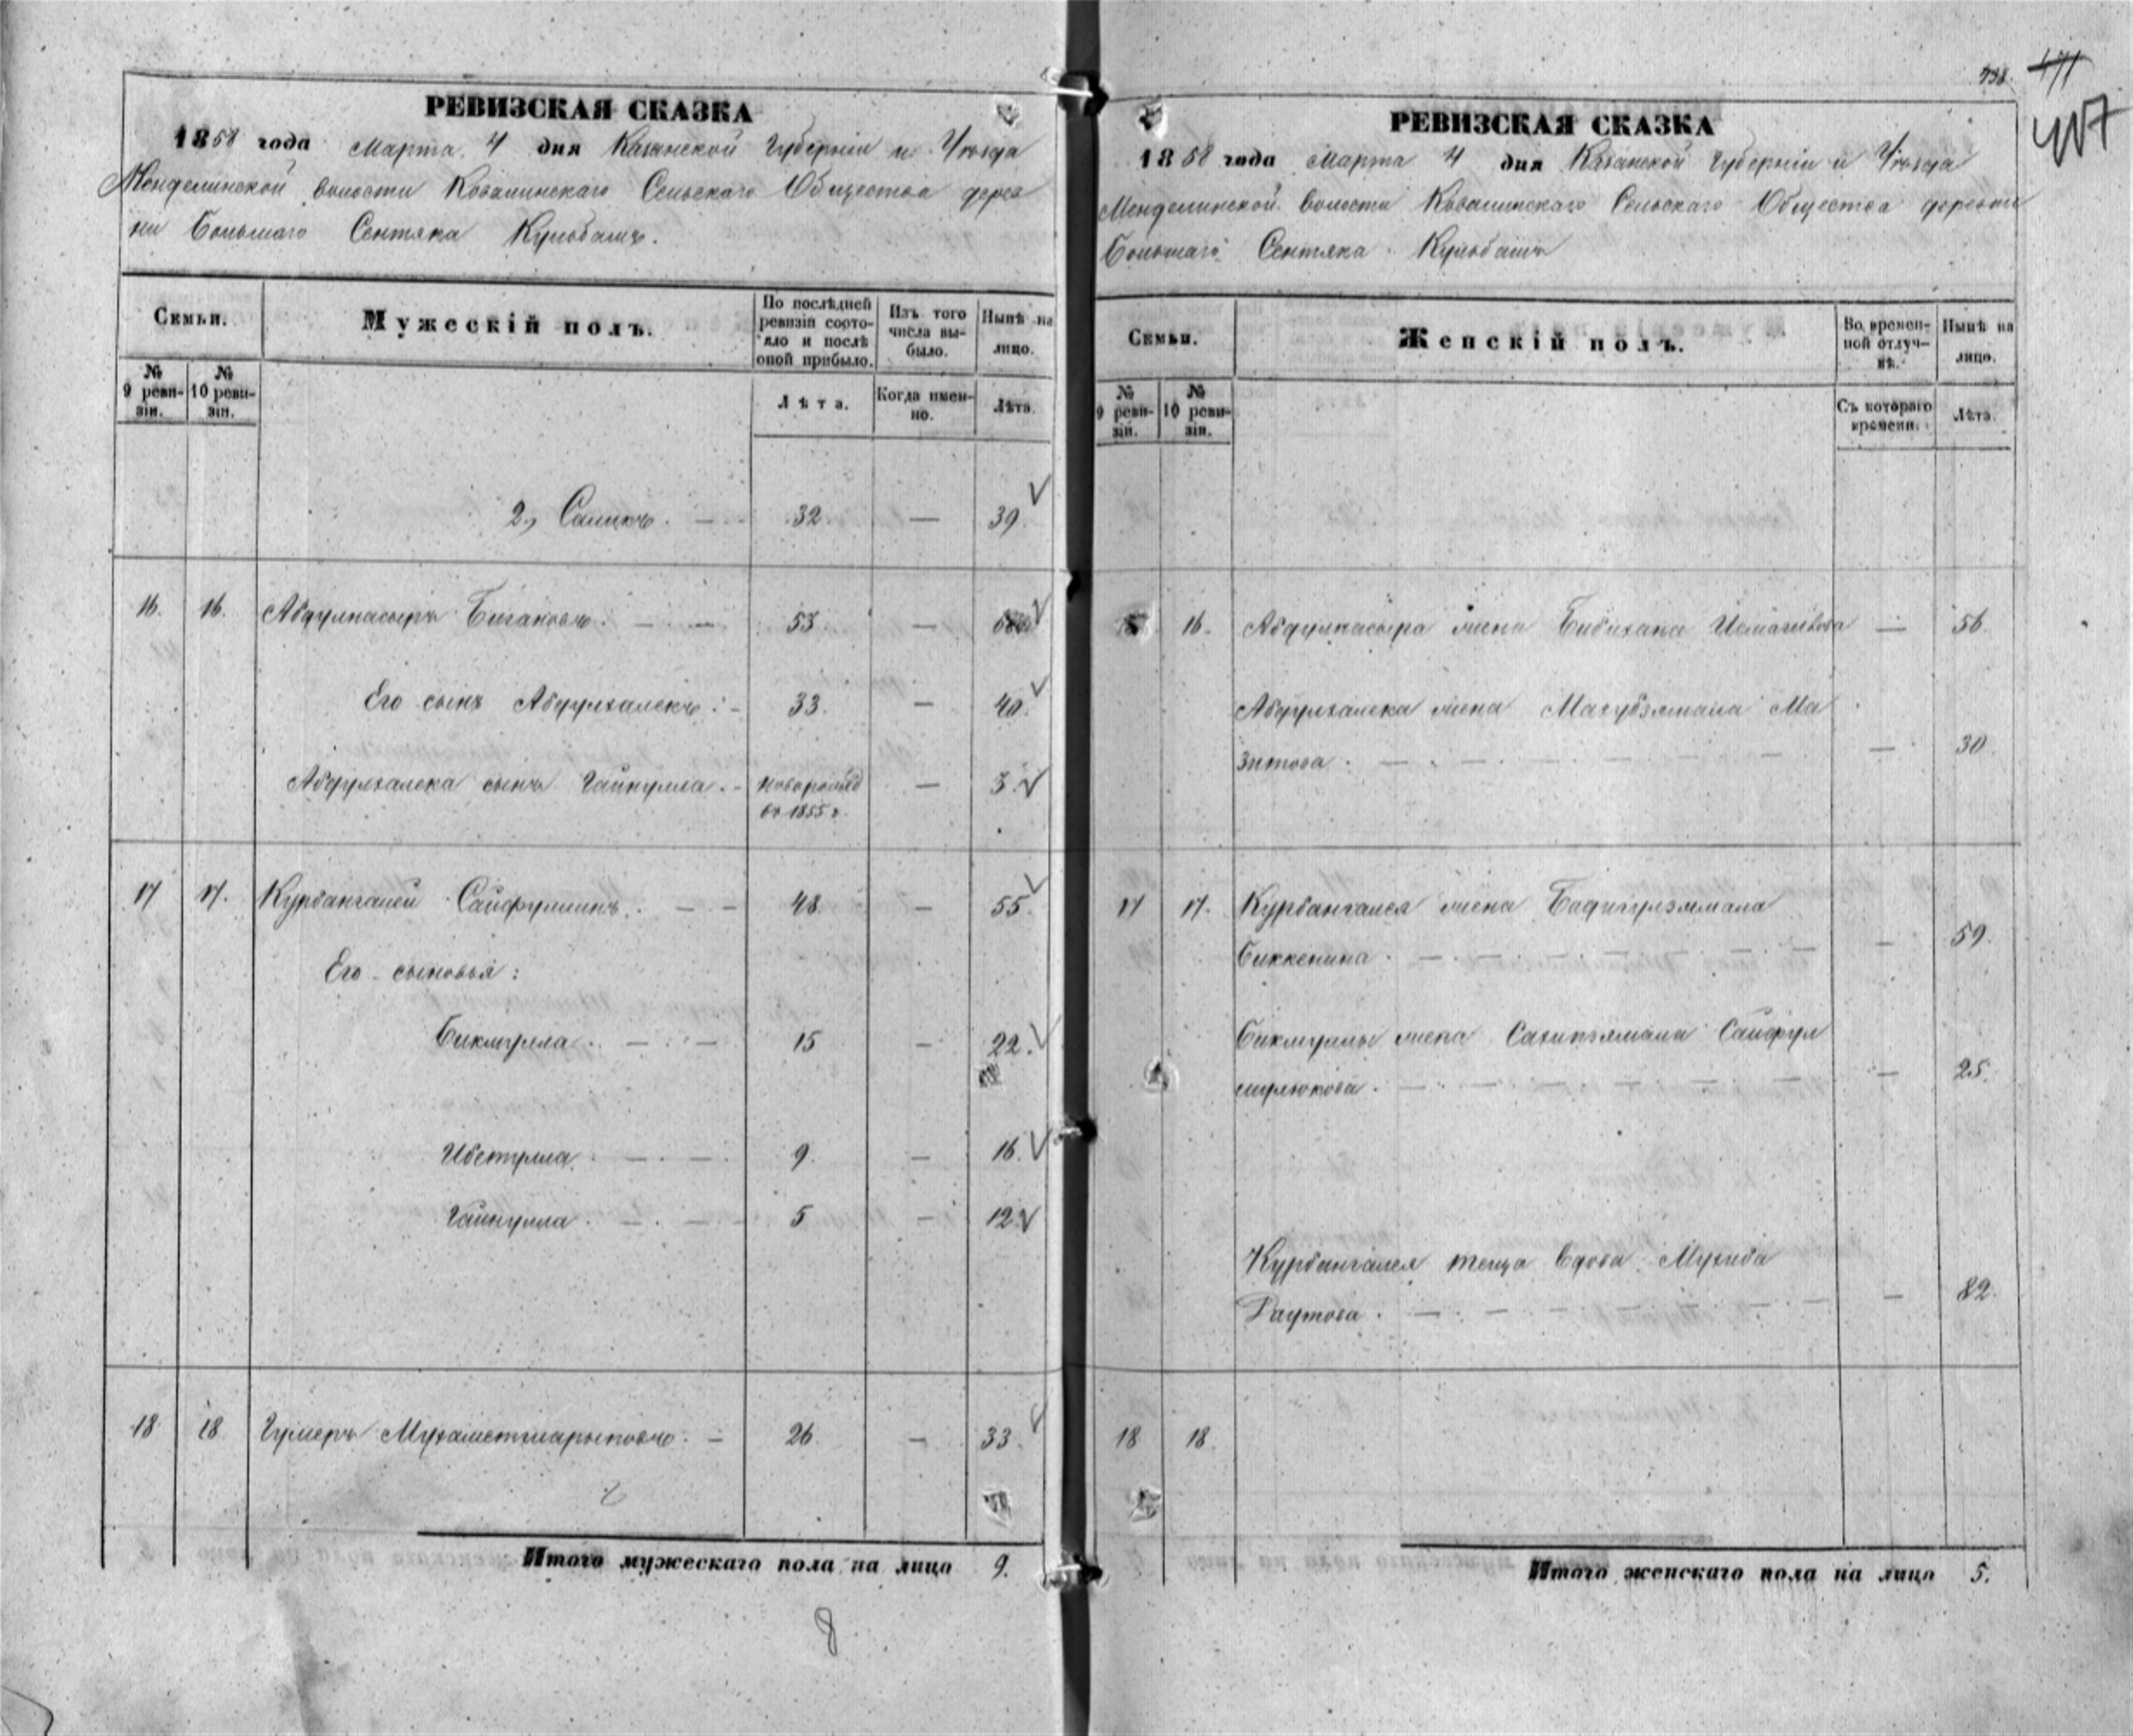 738. 471
407
РЕВИЗСКАЯ СКАЗКА
1858 года Марта 4 дня Казанской Губерніи и Уѣзда
Менделинской волости Ковалинскаго Сельскаго Общества дерев
ни Большаго Сентяка Кульбашъ.
Семьи.
Мужескій полъ.
По послѣдней ревизіи состояло и послѣ оной прибыло.
Изъ того числа выбыло.
Нынѣ на лицо.
№ 9 ревизіи.
№ 10 ревизіи.
Лѣта.
Когда именно.
Лѣта.
2, Салихъ. — 32. — 39.
16. 16. Абдулнасыръ Бигановъ. — — 53. —
Его сынъ Абдулхалекъ: - 33. — 40.
Абдулхалека сынъ Гайнулла. - новорожд — 3.
въ 1855 г.
17 17. Курбангалей Сайфуллинъ. — — 48. — 55.
Его сыновья:
Бикмулла. — — 15 — 22.
Ибетулла. — — 9. — 16.
Гайнулла. — — 5 — 12.
18. 18. Гумеръ Мухаметшарыповъ. — 26. — 33.
Итого мужескаго пола на лицо 9.
8
РЕВИЗСКАЯ СКАЗКА
1858 года Марта 4 дня Казанской Губерніи и Уѣзда
Менделинской волости Ковалинскаго Сельскаго Общества деревни
Большаго Сентяка Кульбашъ
Семьи.
Женскій полъ.
Во временной отлучкѣ.
Нынѣ на лицо.
№ 9 ревизіи.
№ 10 ревизіи.
Съ котораго времени.
Лѣта.
16. Абдулнасыра жена Бибихана Исмагилова — 56.
Абдулхалека жена Махубзямала Ма
зитова. — 30.
17 17. Курбангалея жена Бадигулзямала
Биккенина. — 59.
Бикмуллы жена Сахипзямала Сайфул
мулюкова. — 25.
Курбангалея теща вдова Мухиба
Даутова. — 82.
18 18.
Итого женскаго пола на лицо 5.